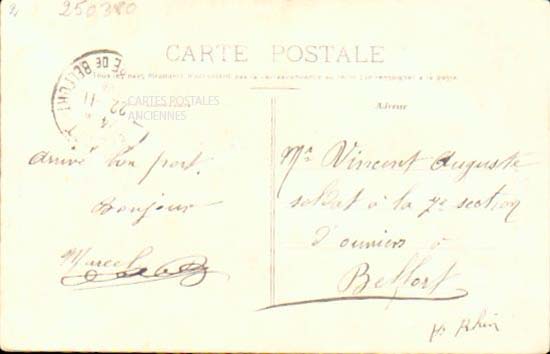 250380
CARTE POSTALE
Tous les pays étrangers n'acceptent pas la correspondance au recto (Se renseigner à la poste)
CARTES POSTALES
ANCIENNES
Adresse
DE BELFORT
22 - 11
arrivé bon port.
Bonjour
Marcel
Mr Vincent Auguste
soldat à la 7e section
d'ouvriers à
Belfort
Ht Rhin